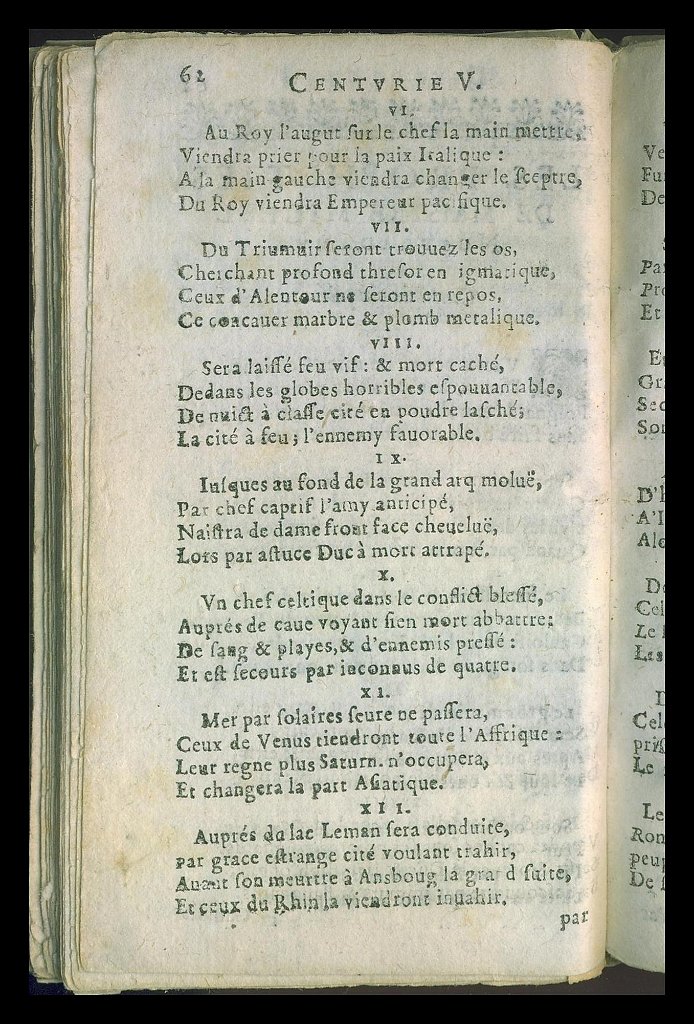 62
CENTVRIE V.
VI.
Au Roy l'augut ſur le chef la main mettre,
Viendra prier pour la paix Italique :
A la main gauche viendra changer le ſceptre,
Du Roy viendra Empereur pacifique.
VII.
Du Triumuir ſeront trouuez les os,
Cherchant profond threſor en igmatique,
Ceux d'Alentour ne ſeront en repos,
Ce concauer marbre & plomb metalique.
VIII.
Sera laiſſé feu vif : & mort caché,
Dedans les globes horribles eſpouuantable,
De nuict à claſſe cité en poudre laſché;
La cité à feu; l'ennemy fauorable.
IX.
Iuſques au fond de la grand arq moluë,
Par chef captif l'amy anticipé,
Naiſtra de dame front face cheueluë,
Lors par aſtuce Duc à mort attrapé.
X.
Vn chef celtique dans le conflict bleſſé,
Auprés de caue voyant ſien mort abbattre:
De ſang & playes, & d'ennemis preſſé :
Et eſt ſecours par inconnus de quatre.
XI.
Mer par ſolaires ſeure ne paſſera,
Ceux de Venus tiendront toute l'Affrique :
Leur regne plus Saturn. n'occupera,
Et changera la part Aſiatique.
XII.
Auprés du lac Leman ſera conduite,
par grace eſtrange cité voulant trahir,
Auant ſon meurtre à Ansboug la grand ſuite,
Et ceux du Rhin la viendront inuahir.
par
Ve
Fu
De
Pa
Pr
Et
E
Gr
Sec
So
D'
A'
Ale
De
Cel
Le
Les
Cel
Le
Le
Ron
peup
De